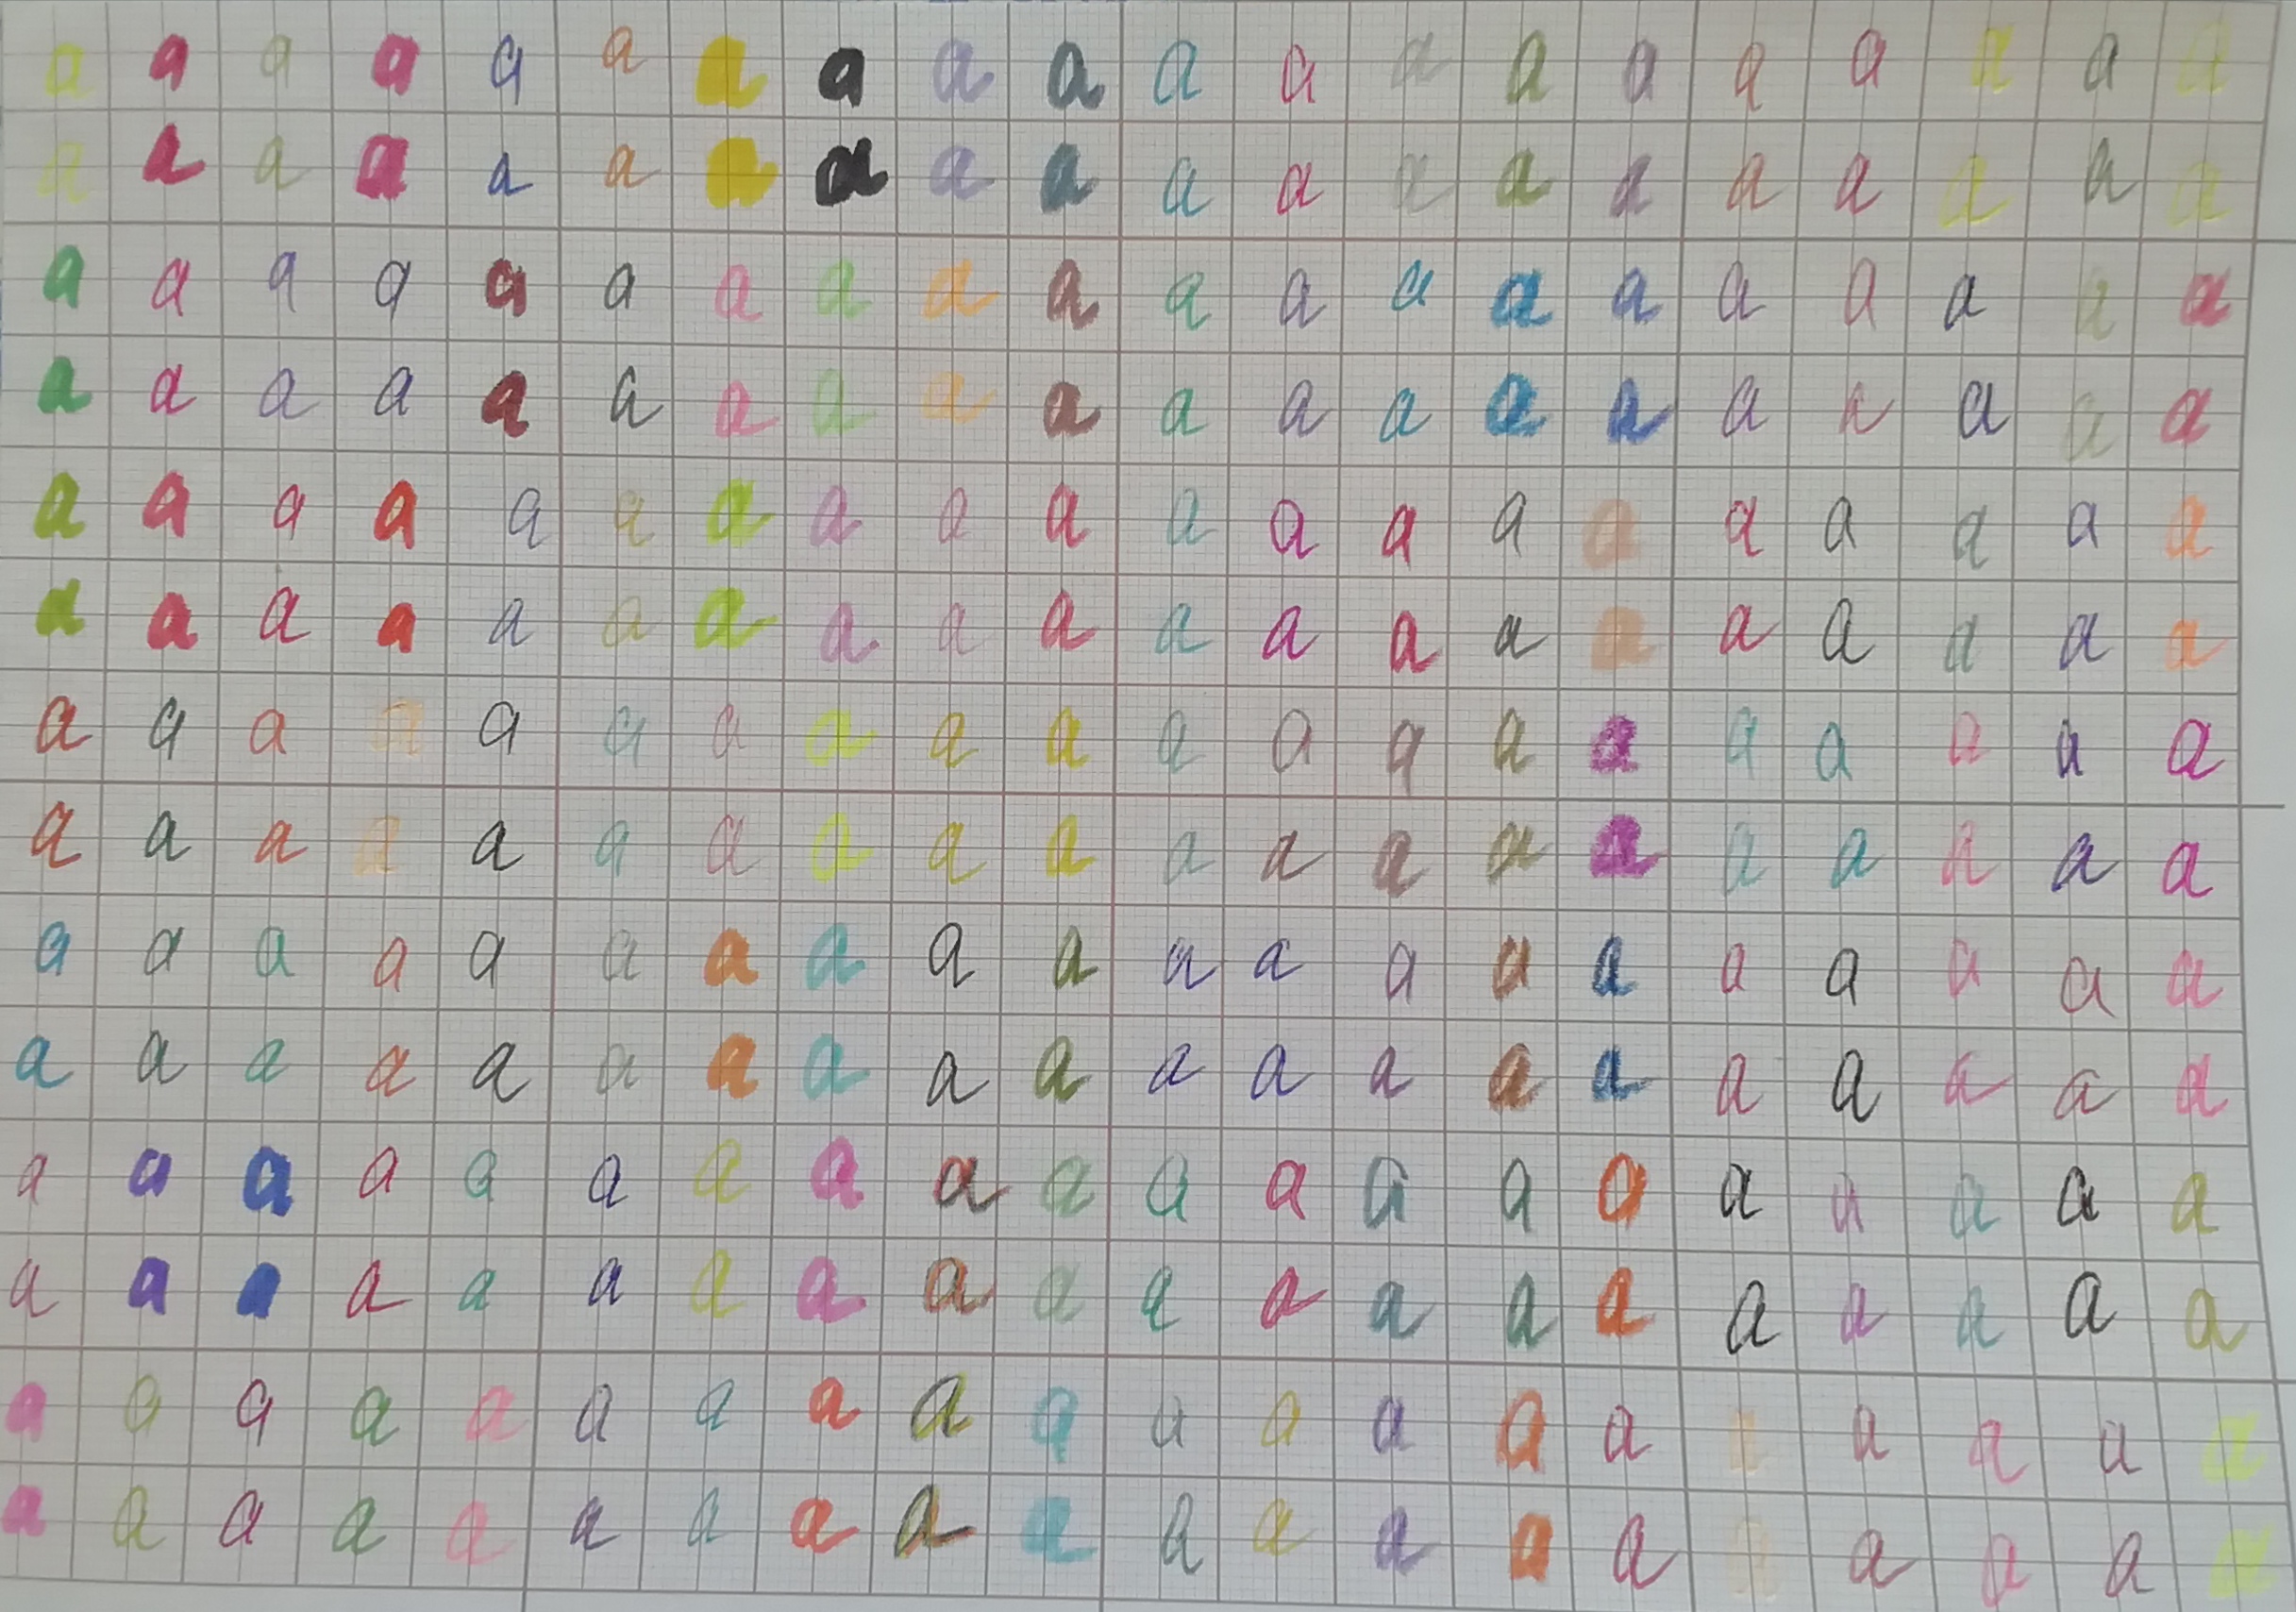 a a a a a a a a a a a a a a a a a a a a
a a a a a a a a a a a a a a a a a a a a
a a a a a a a a a a a a a a a a a a a a
a a a a a a a a a a a a a a a a a a a a
a a a a a a a a a a a a a a a a a a a a
a a a a a a a a a a a a a a a a a a a a
a a a a a a a a a a a a a a a a a a a a
a a a a a a a a a a a a a a a a a a a a
a a a a a a a a a a a a a a a a a a a a
a a a a a a a a a a a a a a a a a a a a
a a a a a a a a a a a a a a a a a a a a
a a a a a a a a a a a a a a a a a a a a
a a a a a a a a a a a a a a a a a a a a
a a a a a a a a a a a a a a a a a a a a